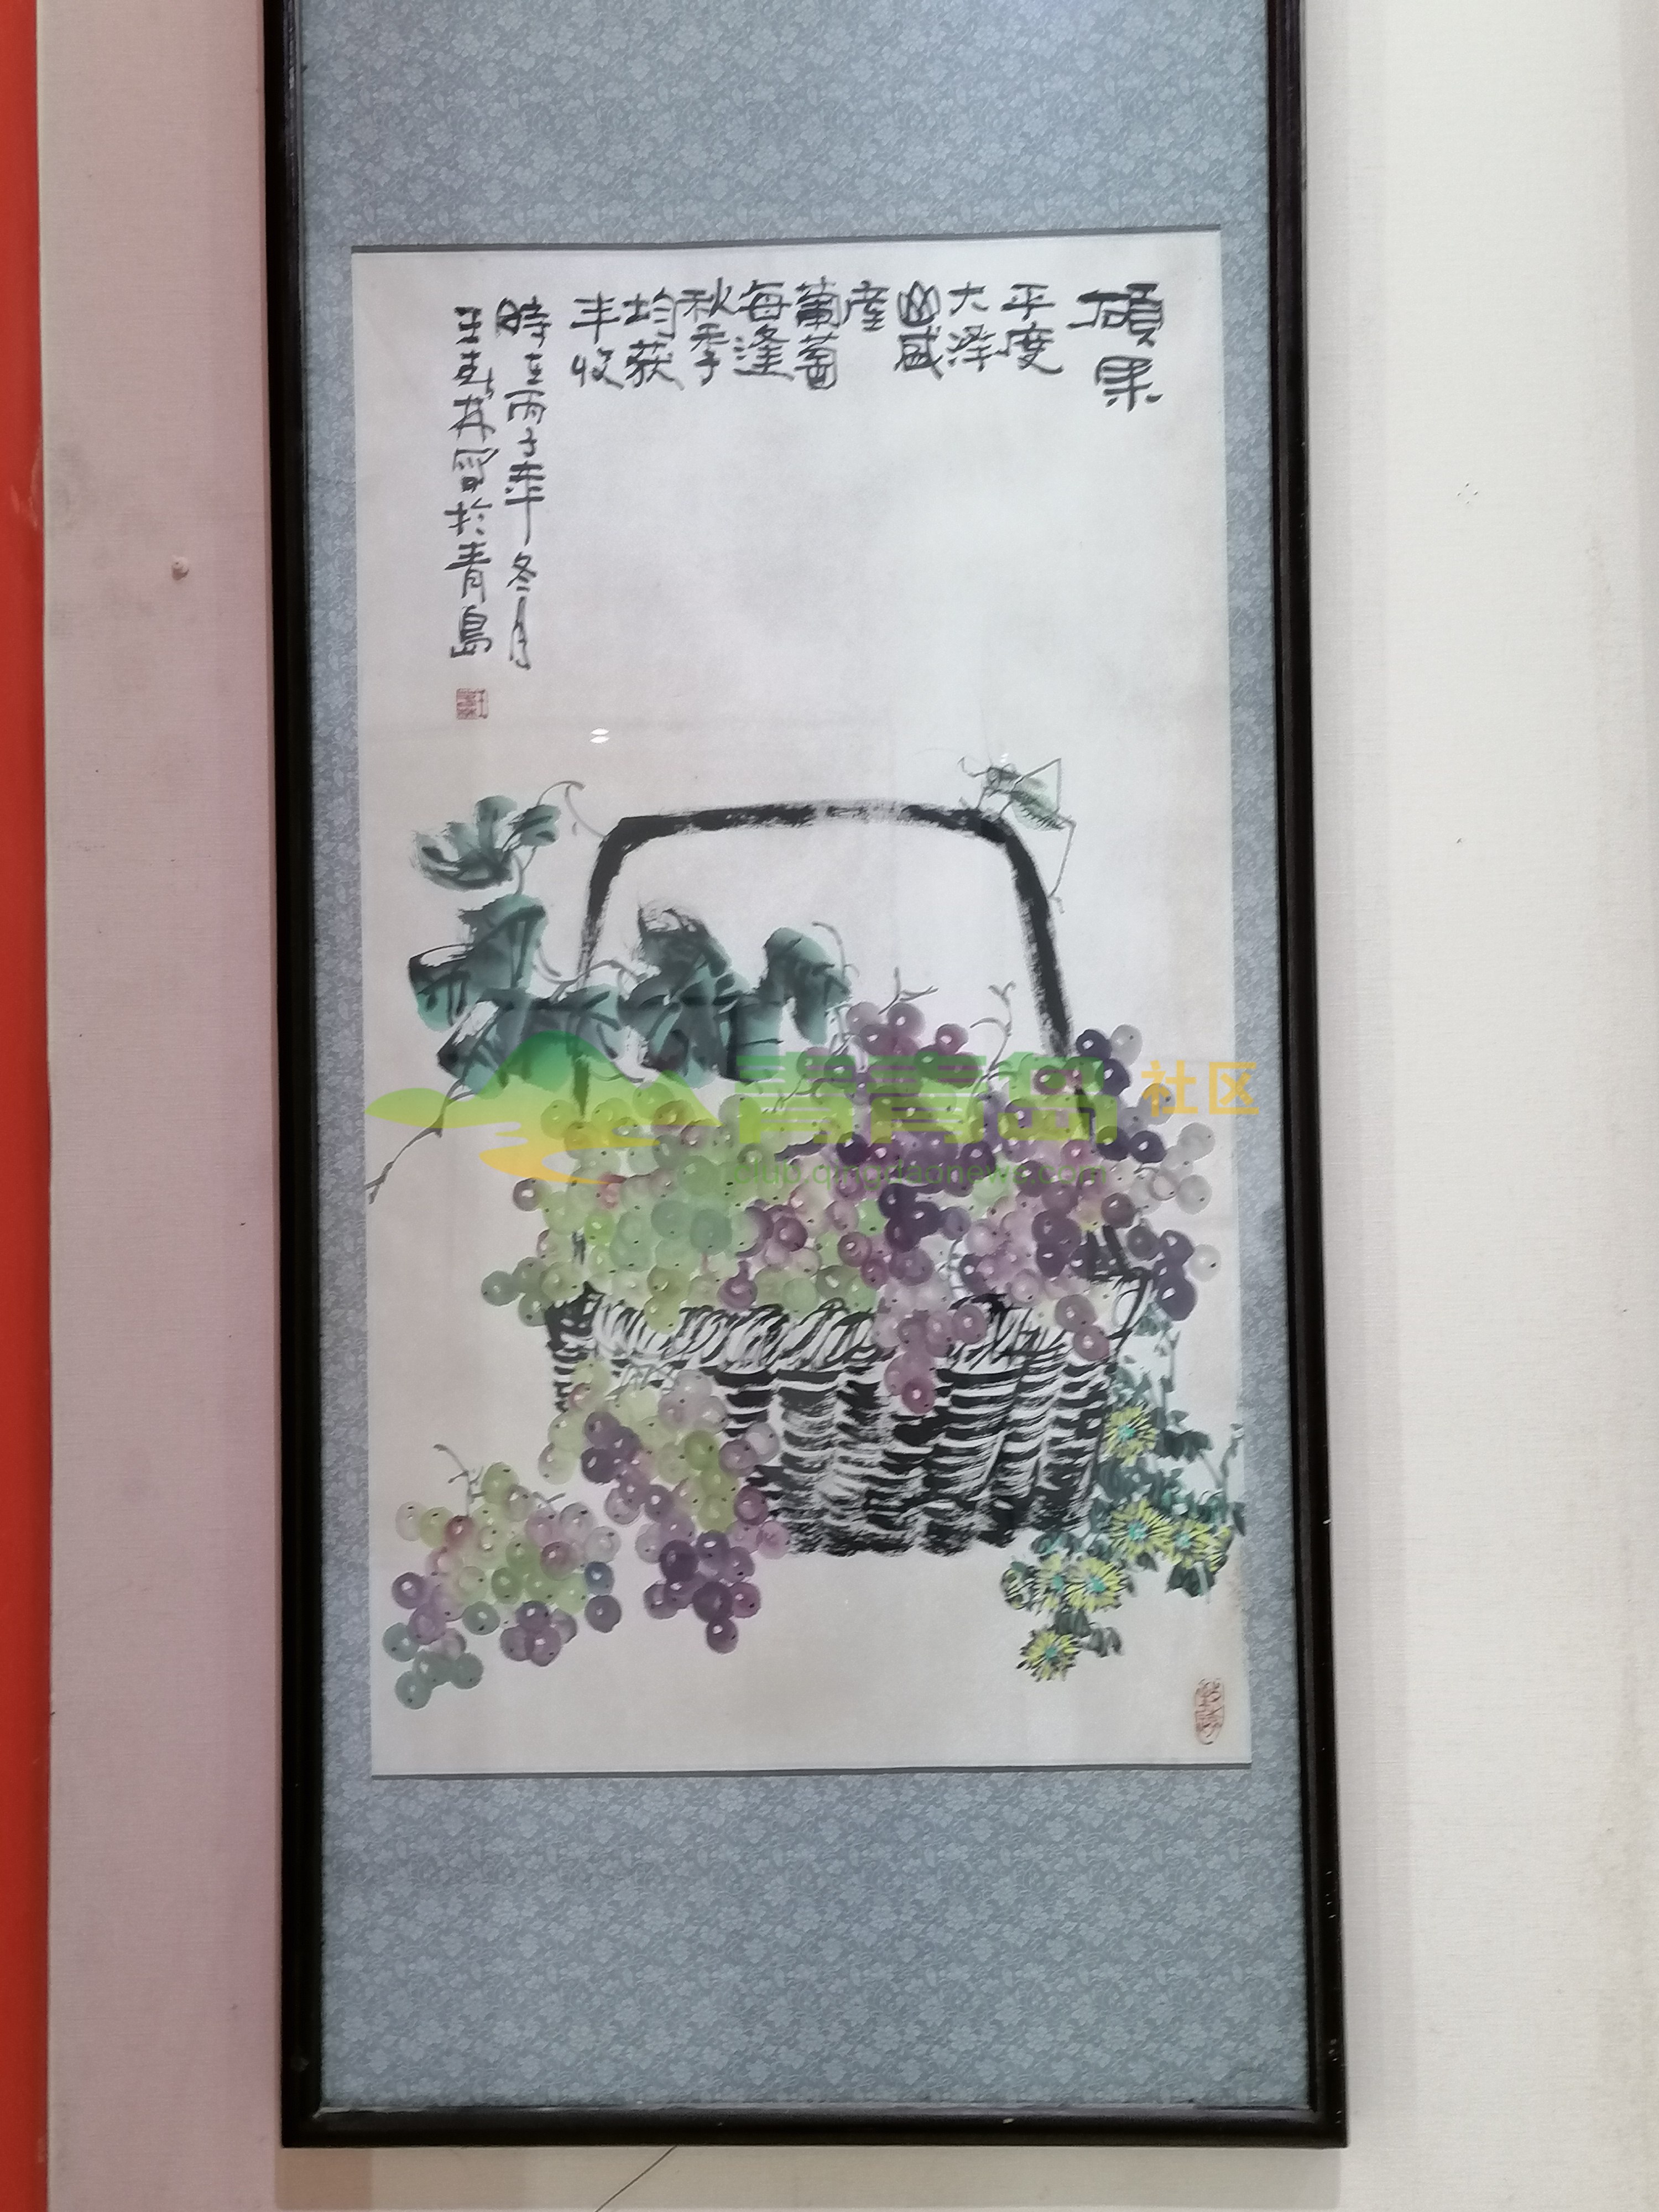 硕果
平度
大泽
山盛
産
葡萄
每逢
秋季
均获
丰收
時在丙子年冬月
於青島
青青岛 社区
club.qingdaonews.com